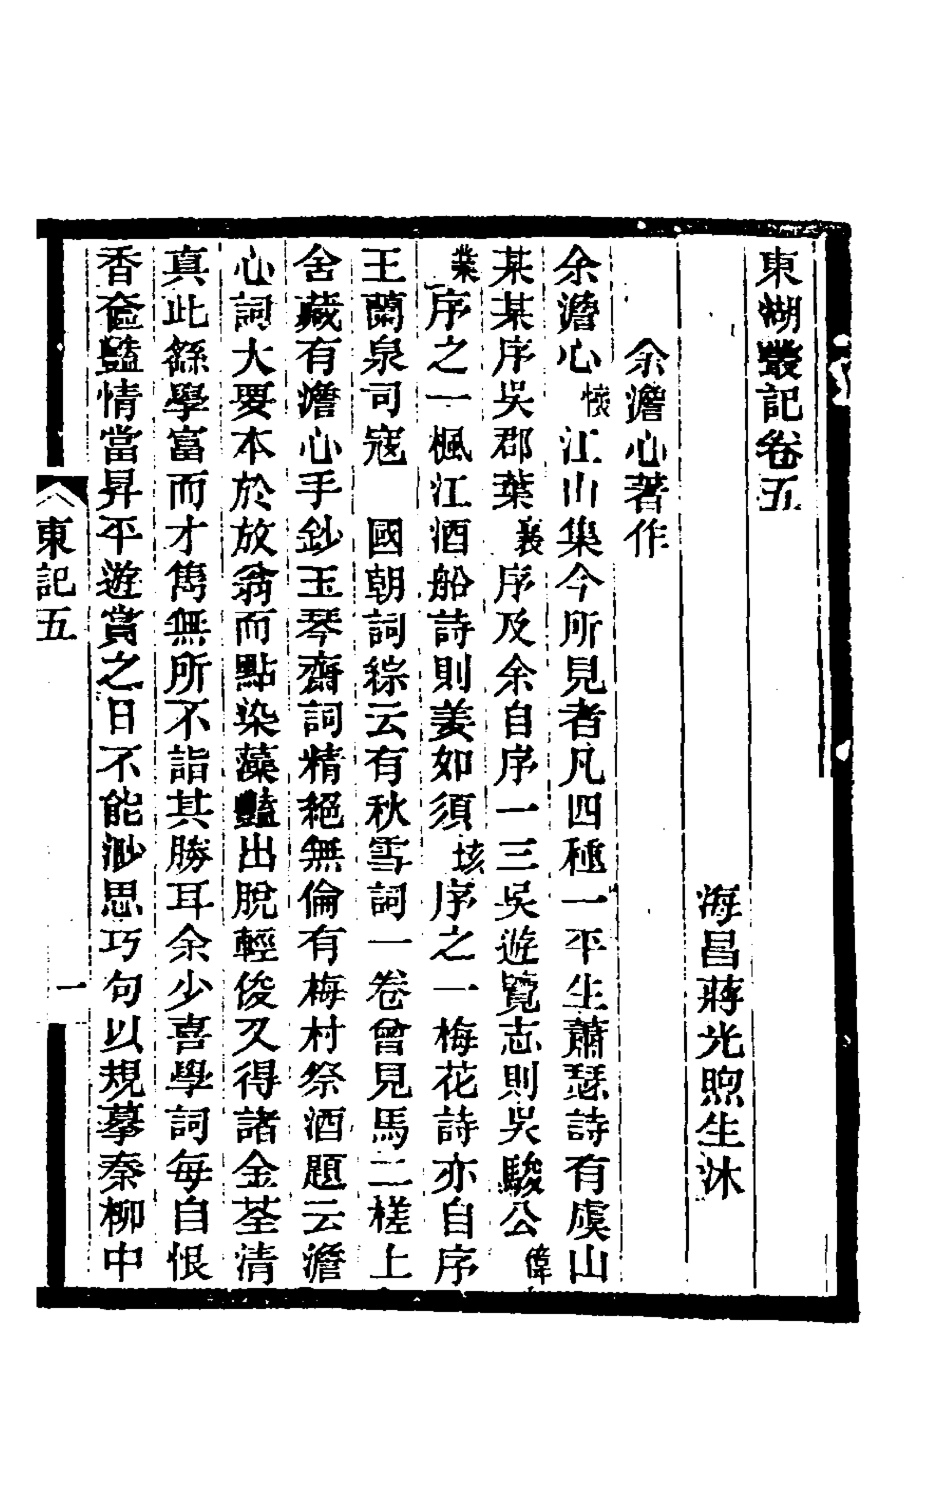 東湖叢記卷五
海昌蔣光煦生沐
余澹心著作
余澹心懷江山集今所見者凡四種一平生蕭瑟詩有虞山
某某序吳郡葉襄序及余自序一三吳遊覽志則吳駿公偉
業序之一楓江酒船詩則姜如須垓序之一梅花詩亦自序
王蘭泉司寇 國朝詞綜云有秋雪詞一卷曾見馬二槎上
舍藏有澹心手鈔玉琴齋詞精絕無倫有梅村祭酒題云澹
心詞大要本於放翁而點染藻豔出脫輕俊又得諸金荃清
真此繇學富而才雋無所不詣其勝耳余少喜學詞每自恨
香奩豔情當昇平遊賞之日不能渺思巧句以規摹秦柳中
東記五
一